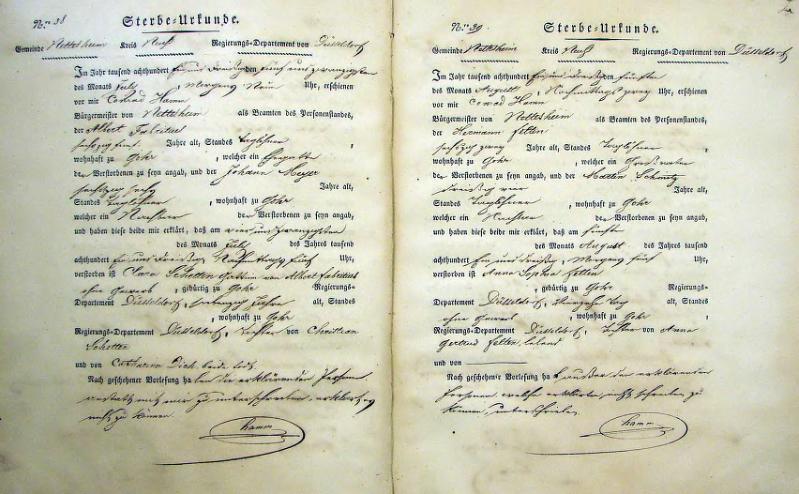 Nro 38
Sterbe-Urkunde.
Gemeinde Nettesheim Kreis Neuß Regierungs-Departement von Düsseldorf
Im Jahr tausend achthundert ein und dreißig den fünf und zwanzigsten
des Monats July, Morgens Neun Uhr, erschienen
vor mir Conrad Hamm
Bürgermeister von Nettesheim als Beamten des Personenstandes,
der Albert Fabritius
sechszig fünf Jahre alt, Standes Taglöhner
wohnhaft zu Gohr, welcher ein
der Verstorbenen zu seyn angab, und der Johann Meyer
Jahre alt,
Standes Taglöhner, wohnhaft zu Gohr
welcher ein Nachbar der Verstorbenen zu seyn angab,
und haben diese beide mir erklärt, daß am vier und zwanzigsten
des Monats July des Jahres tausend
achthundert ein und dreißig, Nachmittags fünf Uhr,
verstorben ist Clara Schotten Gattin von Albert Fabritius
ohne Gewerb, gebürtig zu Gohr Regierungs-
Departement Düsseldorf, Jahre alt, Standes
, wohnhaft zu Gohr
Regierungs-Departement Düsseldorf, Tochter von Christian
Schotten
und von Catharina beide todt
Nach geschehener Vorlesung haben die erklärenden Personen
anstatt mit mir zu unterschreiben, erklärt
nicht zu können.
Hamm
Nro 39
Sterbe-Urkunde.
Gemeinde Nettesheim Kreis Neuß Regierungs-Departement von Düsseldorf
Im Jahr tausend achthundert ein und dreißig den fünften
des Monats August, Nachmittags zwey Uhr, erschienen
vor mir Conrad Hamm
Bürgermeister von Nettesheim als Beamten des Personenstandes,
der Hermann Felten
sechszig zwey Jahre alt, Standes Taglöhner
wohnhaft zu Gohr, welcher ein Großvater
der Verstorbenen zu seyn angab, und der Martin Schmitz
dreißig vier Jahre alt,
Standes Taglöhner, wohnhaft zu Gohr
welcher ein Nachbar der Verstorbenen zu seyn angab,
und haben diese beide mir erklärt, daß am fünften
des Monats August des Jahres tausend
achthundert ein und dreißig, Morgens fünf Uhr,
verstorben ist Anna Sophia Felten
, gebürtig zu Gohr Regierungs-
Departement Düsseldorf, Tag alt, Standes
ohne Gewerb, wohnhaft zu Gohr
Regierungs-Departement Düsseldorf, Tochter von Anna
Gertrud Felten,
und von
Nach geschehener Vorlesung hab außer den erklärenden
Personen, welche erklärten, nicht schreiben zu
können, unterschrieben
Hamm